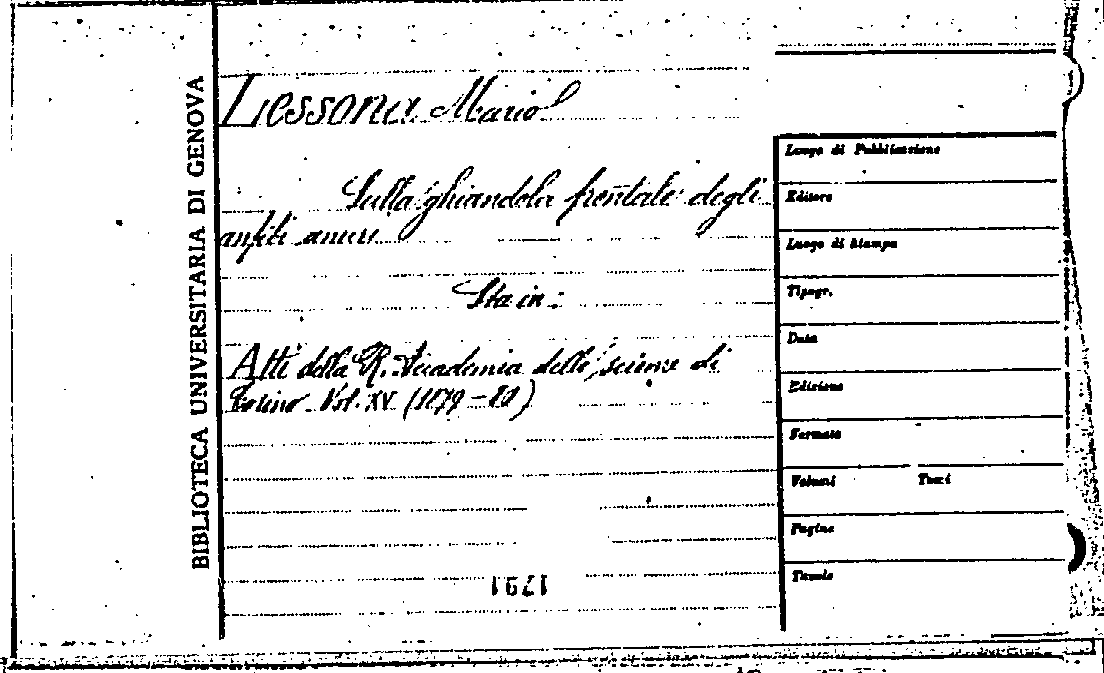 BIBLIOTECA UNIVERSITARIA DI GENOVA
Lessona Mario
Sulla ghiandola frontale degli
anfibi anuri
Sta in:
Atti della R. Accademia delle scienze di
Torino Vol. XV (1879-80)
Luogo di Pubblicazione
Editore
Luogo di Stampa
Tipogr.
Data
Edizione
Formato
Volumi Tomi
Pagine
Tavole